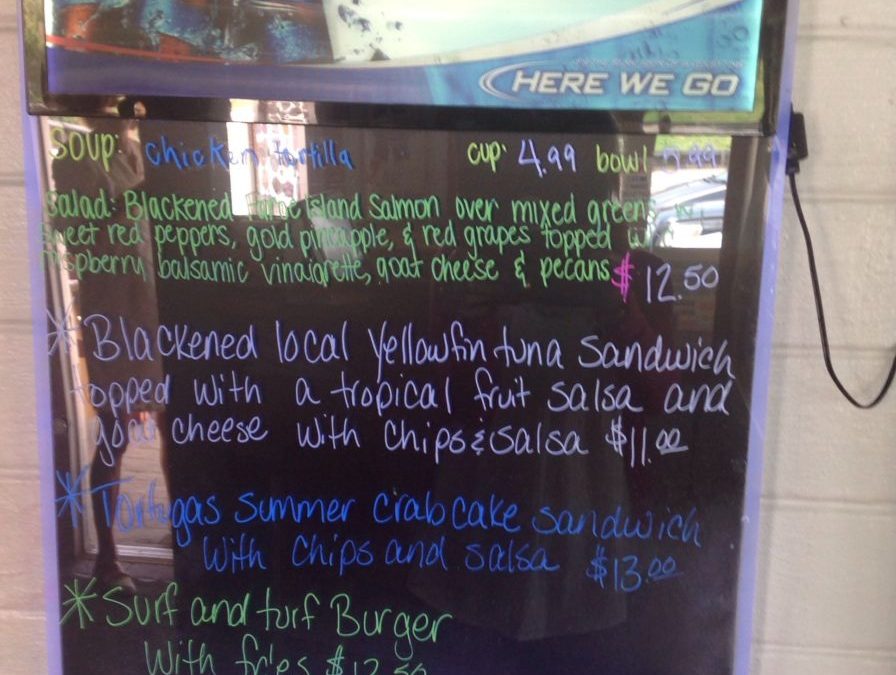 HERE WE GO
SOUP: chicken tortilla cup: 4.99 bowl
Salad: Blackened Island Salmon over mixed greens
sweet red peppers, gold pineapple, & red grapes topped with
raspberry balsamic vinaigrette, goat cheese & pecans $12.50
* Blackened local Yellowfin tuna sandwich
topped with a tropical fruit salsa and
goat cheese with chips & salsa $11.00
* Tortugas summer crabcake sandwich
with chips and salsa $13.00
* Surf and turf Burger
with fries $12.50